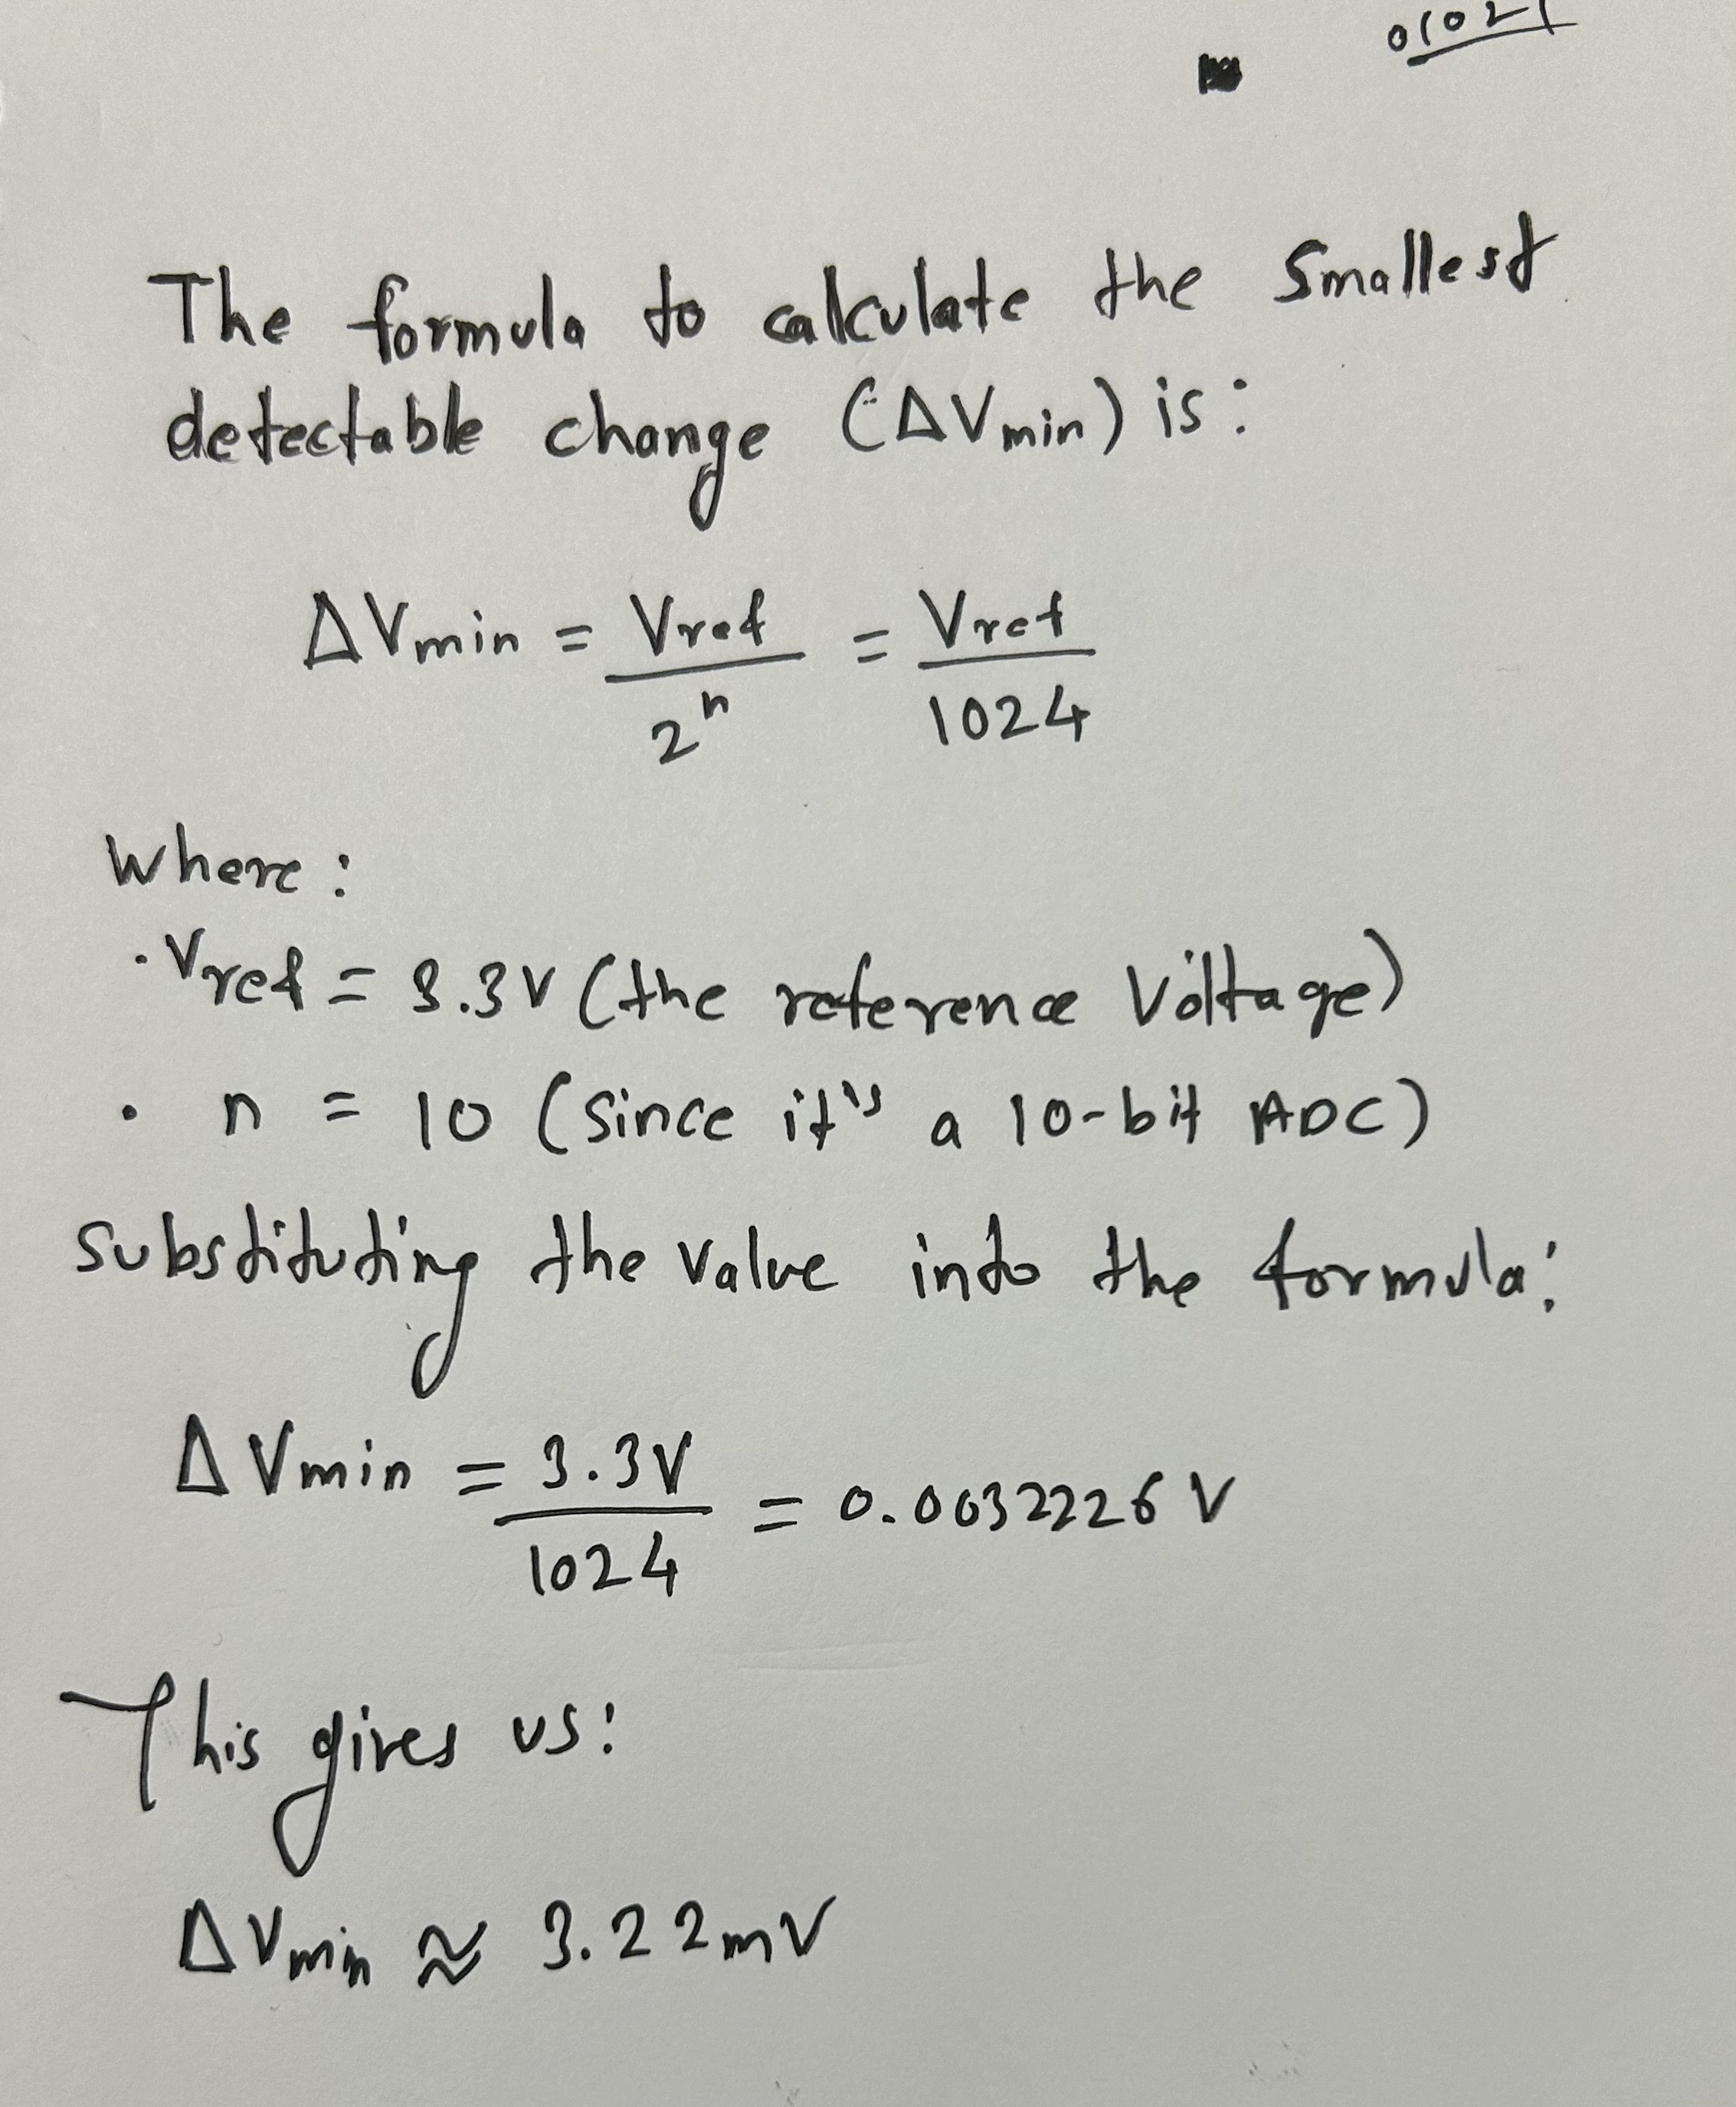 The formula to calculate the Smallest
detectable change (ΔVmin) is:
ΔVmin = Vref / 2^n = Vref / 1024
Where:
· Vref = 3.3V (the reference Voltage)
· n = 10 (Since it's a 10-bit ADC)
substituting the value into the formula:
ΔVmin = 3.3V / 1024 = 0.0032226 V
This gives us:
ΔVmin ≈ 3.22mV